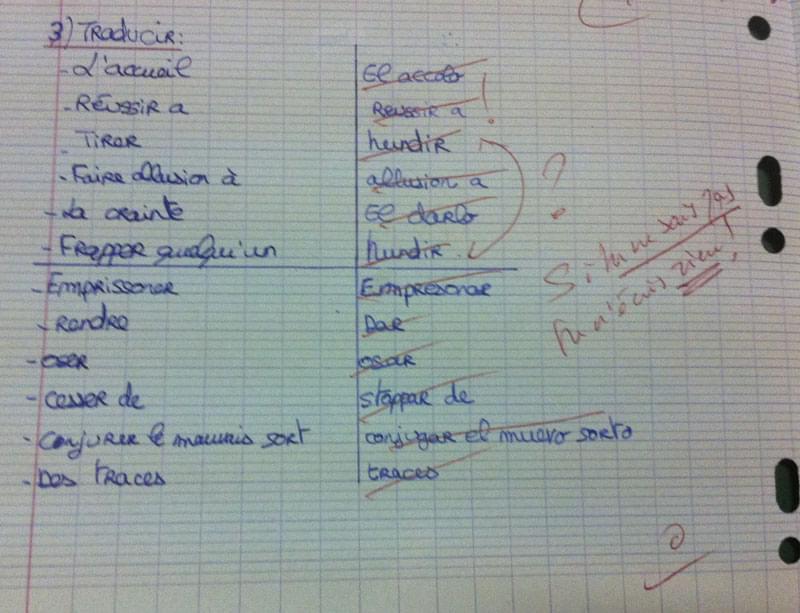 3) Traducir:
- L'accueil El accolo
- Réussir a Reussir a !
- Tirer hundir
- Faire allusion à allusion a ?
- La crainte El darlo
- Frapper quelqu'un hundir
- Emprissoner Empresonar
- Rendre Dar
- oser osar
- cesser de stoppar de
- conjurer le mauvais sort conjugar el muevo sorto
- Des traces traces
Si tu ne sais pas
tu n'écris rien !
0